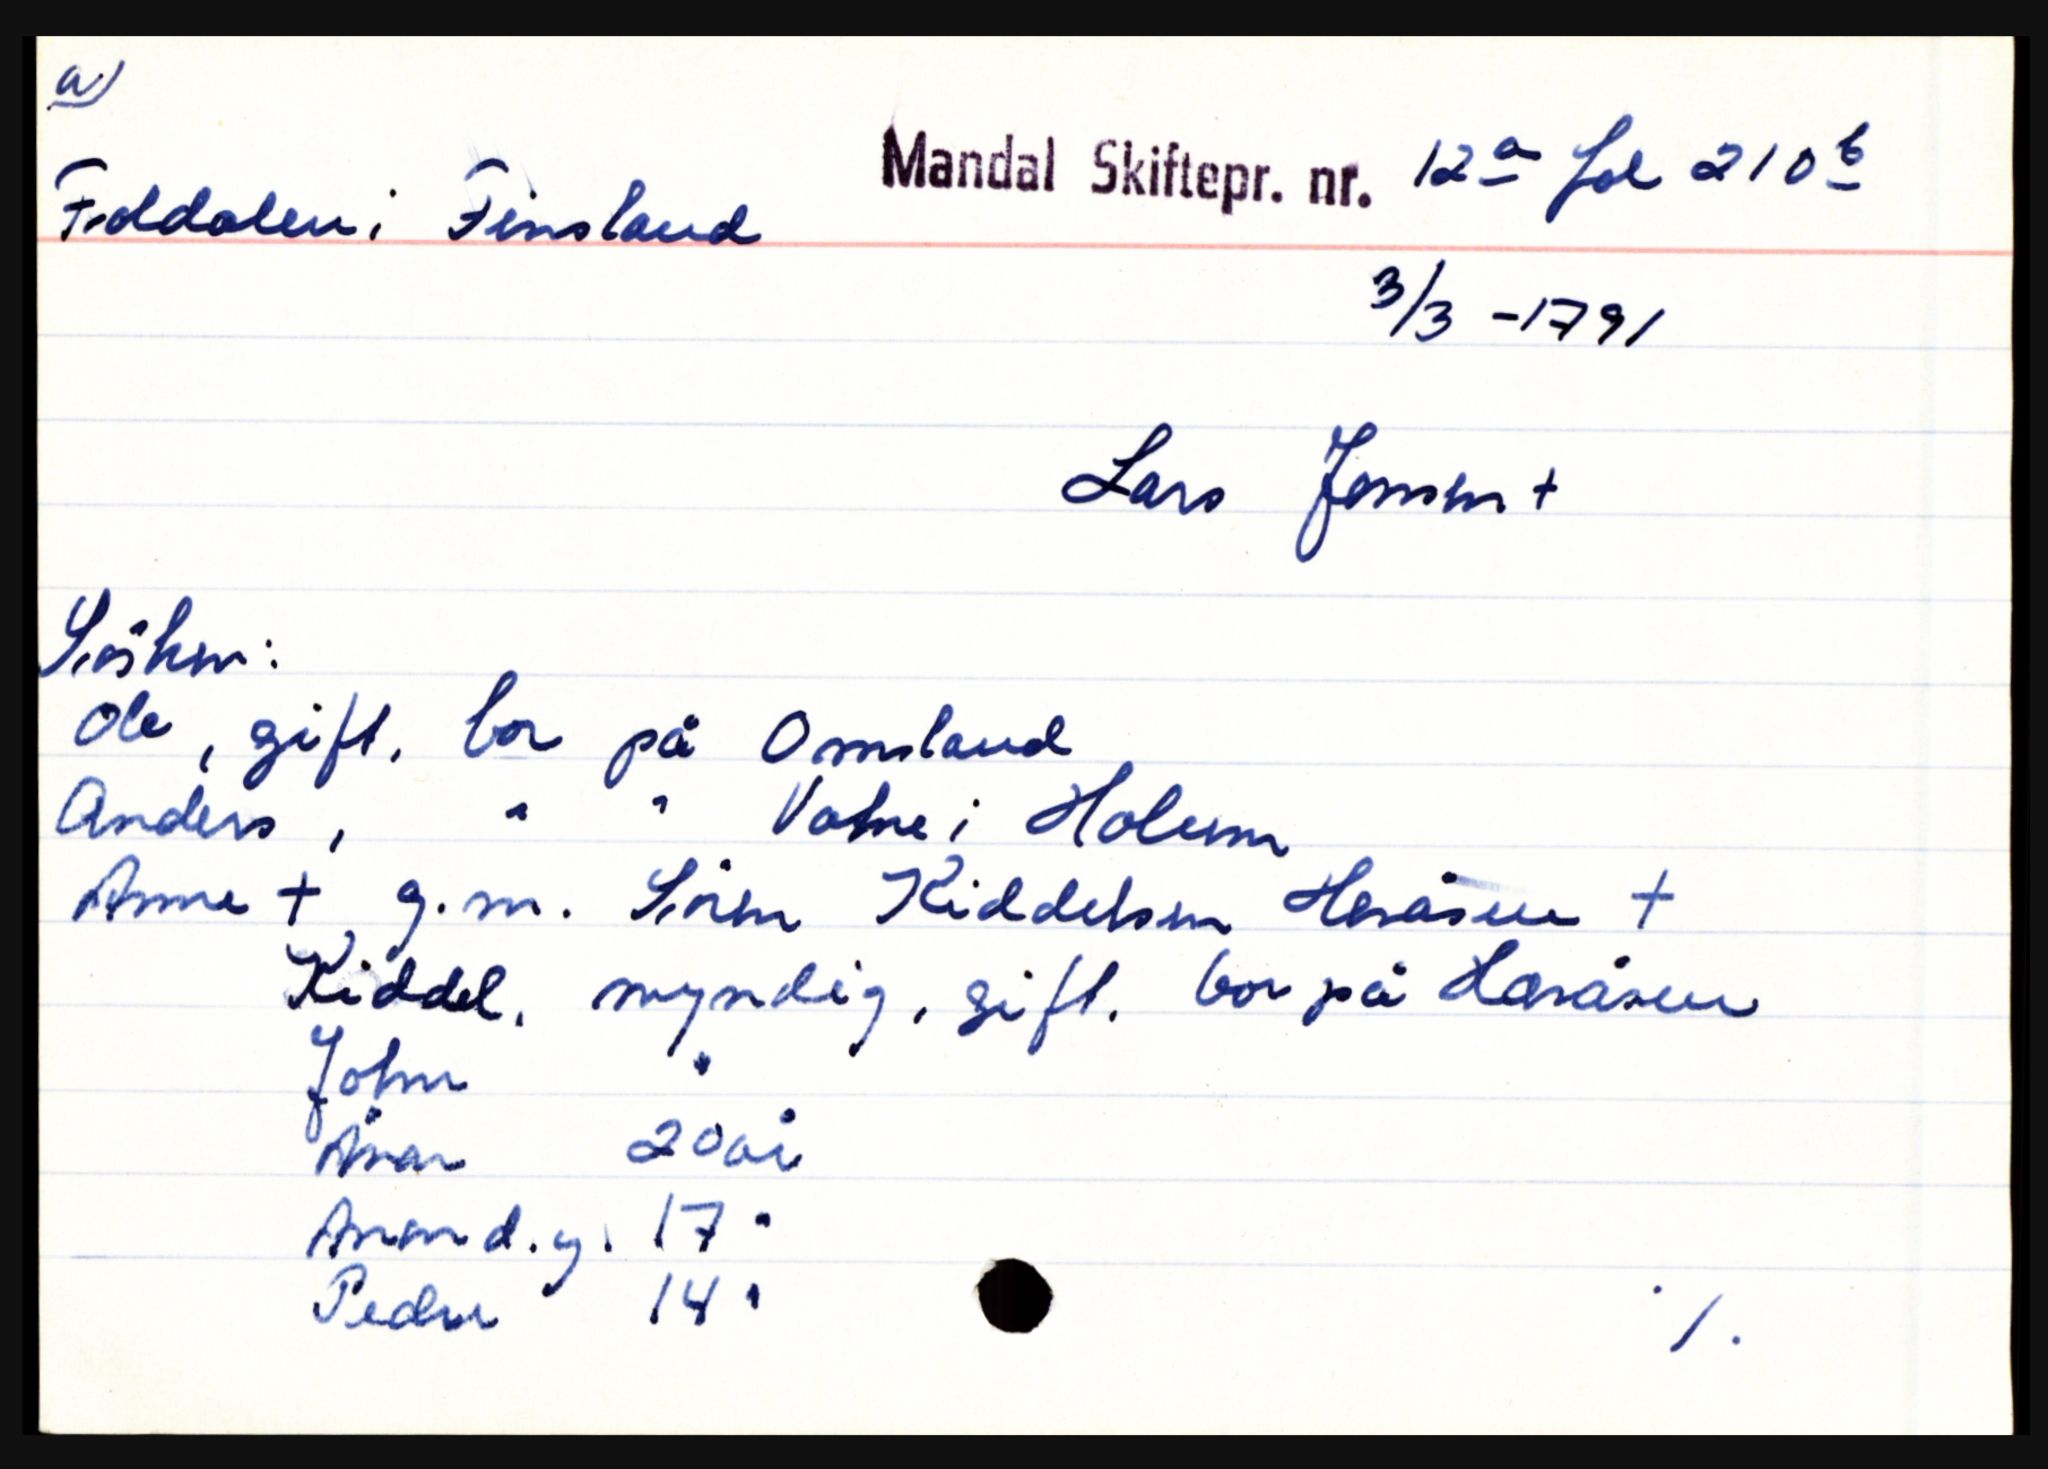 a)
Mandal Skiftepr. nr. 12a fol 210b
Foddalen i Finsland
3/3 -1791
Lars Jensen +
Søsken:
Ole, gift, bor på Omsland
Anders, " " Valne i Holum
Anne + g.m. Sören Kiddelsen Heråsen +
Kiddel, myndig, gift, bor på Heråsen
John "
Anan 20 år
Anen d.y. 17 "
Peder 14 "
1.